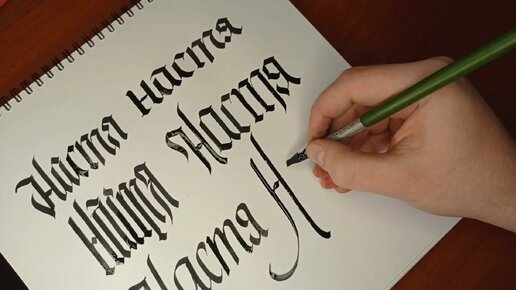 Настя настя
Настя Настя
Настя Н